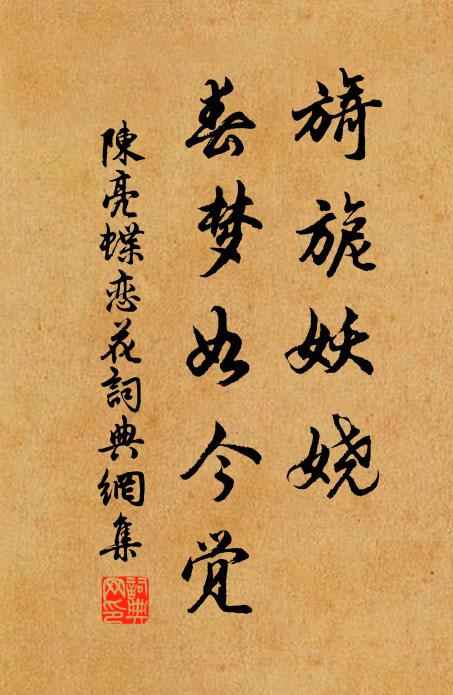 旖旎妖娆
春梦如今觉
陳亮蝶恋花詞典網集
詞典网印